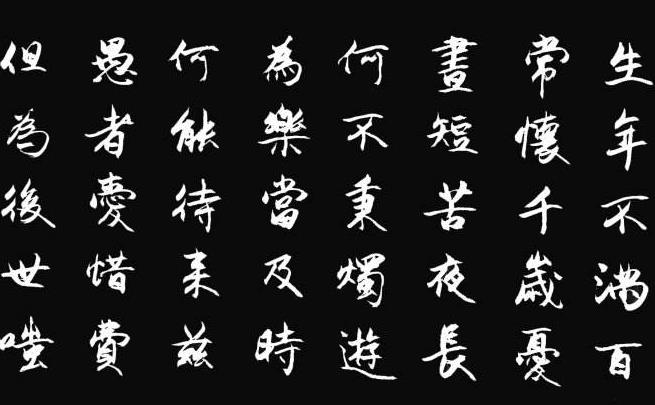 生年不滿百
常懷千歲憂
晝短苦夜長
何不秉燭遊
為樂當及時
何能待來茲
愚者愛惜費
但為後世嗤